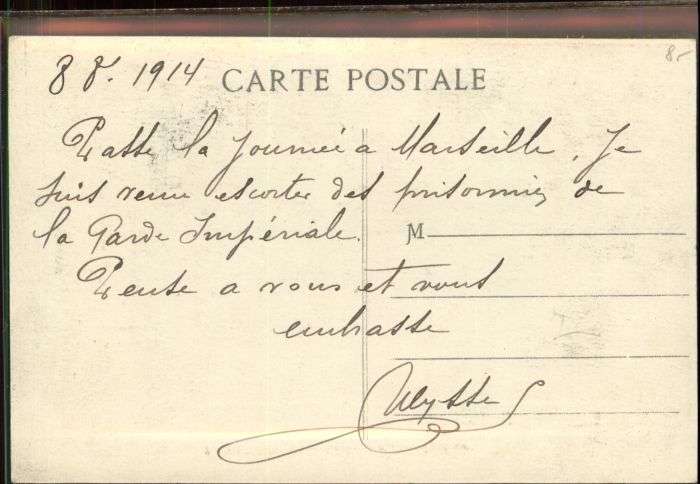 8 8. 1914 CARTE POSTALE
8-
Passe la journée a Marseille. Je
suis venu escorter des prisonniers de
la Garde Impériale.
M
Pense a vous et vous
embrasse
Ulysse